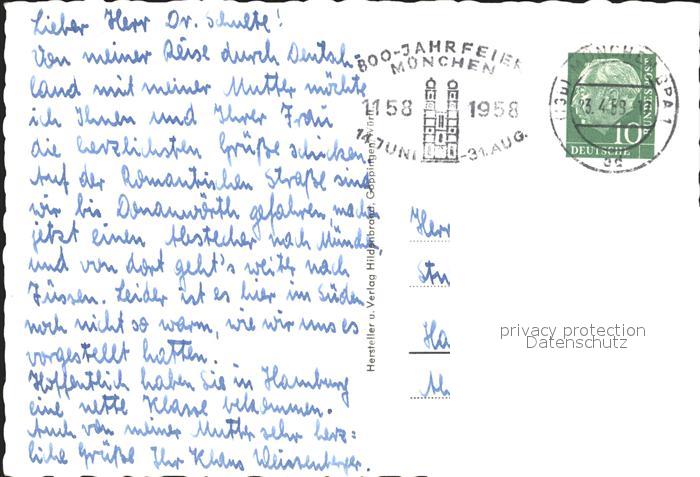 Lieber Herr Dr. Schulte!
Von meiner Reise durch Deutsch-
land mit meiner Mutter möchte
ich Ihnen und Ihrer Frau
die herzlichsten Grüße schicken.
Auf der Romantischen Straße sind
wir bis Donauwörth gefahren, machen
jetzt einen Abstecher nach München,
und von dort geht's weiter nach
Füssen. Leider ist es hier im Süden
noch nicht so warm, wie wir uns es
vorgestellt hatten.
Hoffentlich haben Sie in Hamburg
eine nette Klasse bekommen.
Auch von meiner Mutter sehr herz=
liche Grüße Ihr Klaus Weissenberger.
Hersteller u. Verlag Hildenbrand, Göppingen, Württ.
800-JAHRFEIER
MÜNCHEN
1158 1958
14. JUNI -31. AUG.
MÜNCHEN BPA 1
23.4.58
gg
DEUTSCHE
BUNDESPOST
10
Herr
Stu
Ha
privacy protection
Datenschutz